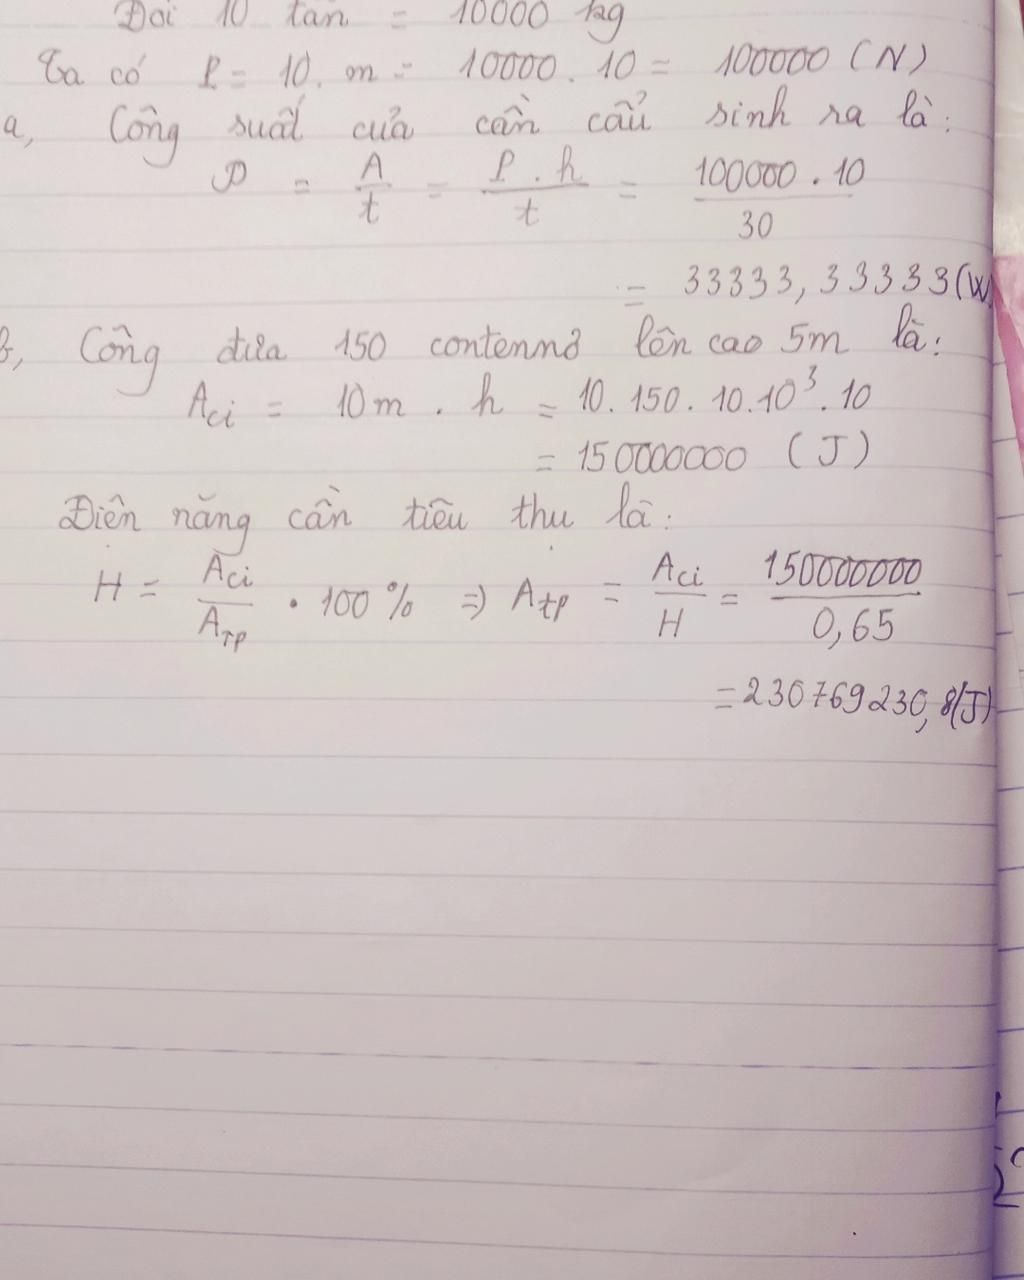 Đổi 10 tấn = 10000 kg
Ta có P = 10. m = 10000. 10 = 100000 (N)
a, Công suất của cần cẩu sinh ra là:
P = A/t = P.h/t = 100000.10/30
= 33333,33333(W)
b, Công đưa 150 contennơ lên cao 5m là:
Aci = 10m . h = 10. 150. 10.10³.10
= 150000000 (J)
Điện năng cần tiêu thụ là:
H = Aci/ATP . 100% => Atp = Aci/H = 150000000/0,65
= 230769230,8(J)